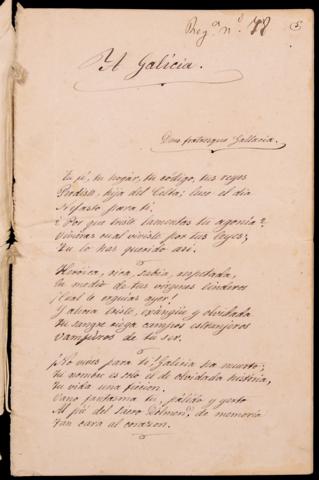 Reg.ª n.º 78 5
A Galicia.
Deus fratresque Gallaecia.
Tu fé, tu hogar, tu código, tus reyes
Perdiste, hija del Celta; luce el día
Nefasto para ti.
¿Por qué triste lamentas tu agonía?
Vivieras cual viviste por tus leyes;
Tu lo has querido así.
Heróica, rica, sabia, respetada,
En medio de tus vírgenes linderos
¡Cual te erguias ayer!
Y ahora triste, exángüe y olvidada
Tu sangre riega campos extranjeros
Vampiros de tu ser.
¡No vives para ti! Galicia ha muerto;
Tu nombre es solo el de olvidada historia,
Tu vida una ficción.
Vano fantasma tu, pálido y yerto
Al pié del Sacro Dólmen, de memoria
Tan cara al corazon.